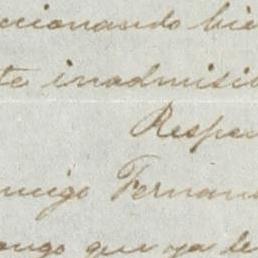 ccionando bie
te inadmisi
Respe
migo Fernan
ongo que ya le